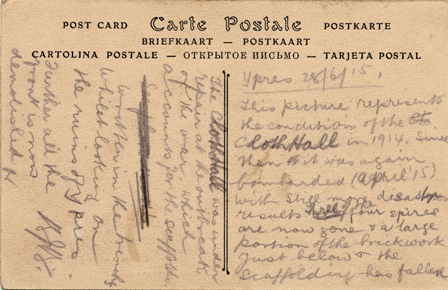 POST CARD Carte Postale POSTKARTE
BRIEFKAART — POSTKAART
CARTOLINA POSTALE — ОТКРЫТОЕ ПИСЬМО — TARJETA POSTAL
Ypres 28/6/15.
This picture represents
the condition of the
Cloth Hall in 1914. Since
then it was again
bombarded (April 15)
with still more disastrous
results Three of the four spires
are now gone & a large
portion of the brickwork
just below & the
scaffolding has fallen
The Cloth Hall was under
repair at the outbreak
of the war which
accounts for the scaffold.
written in the trenches
whilst looking on
the ruins of Ypres
further all the
front is now
demolished